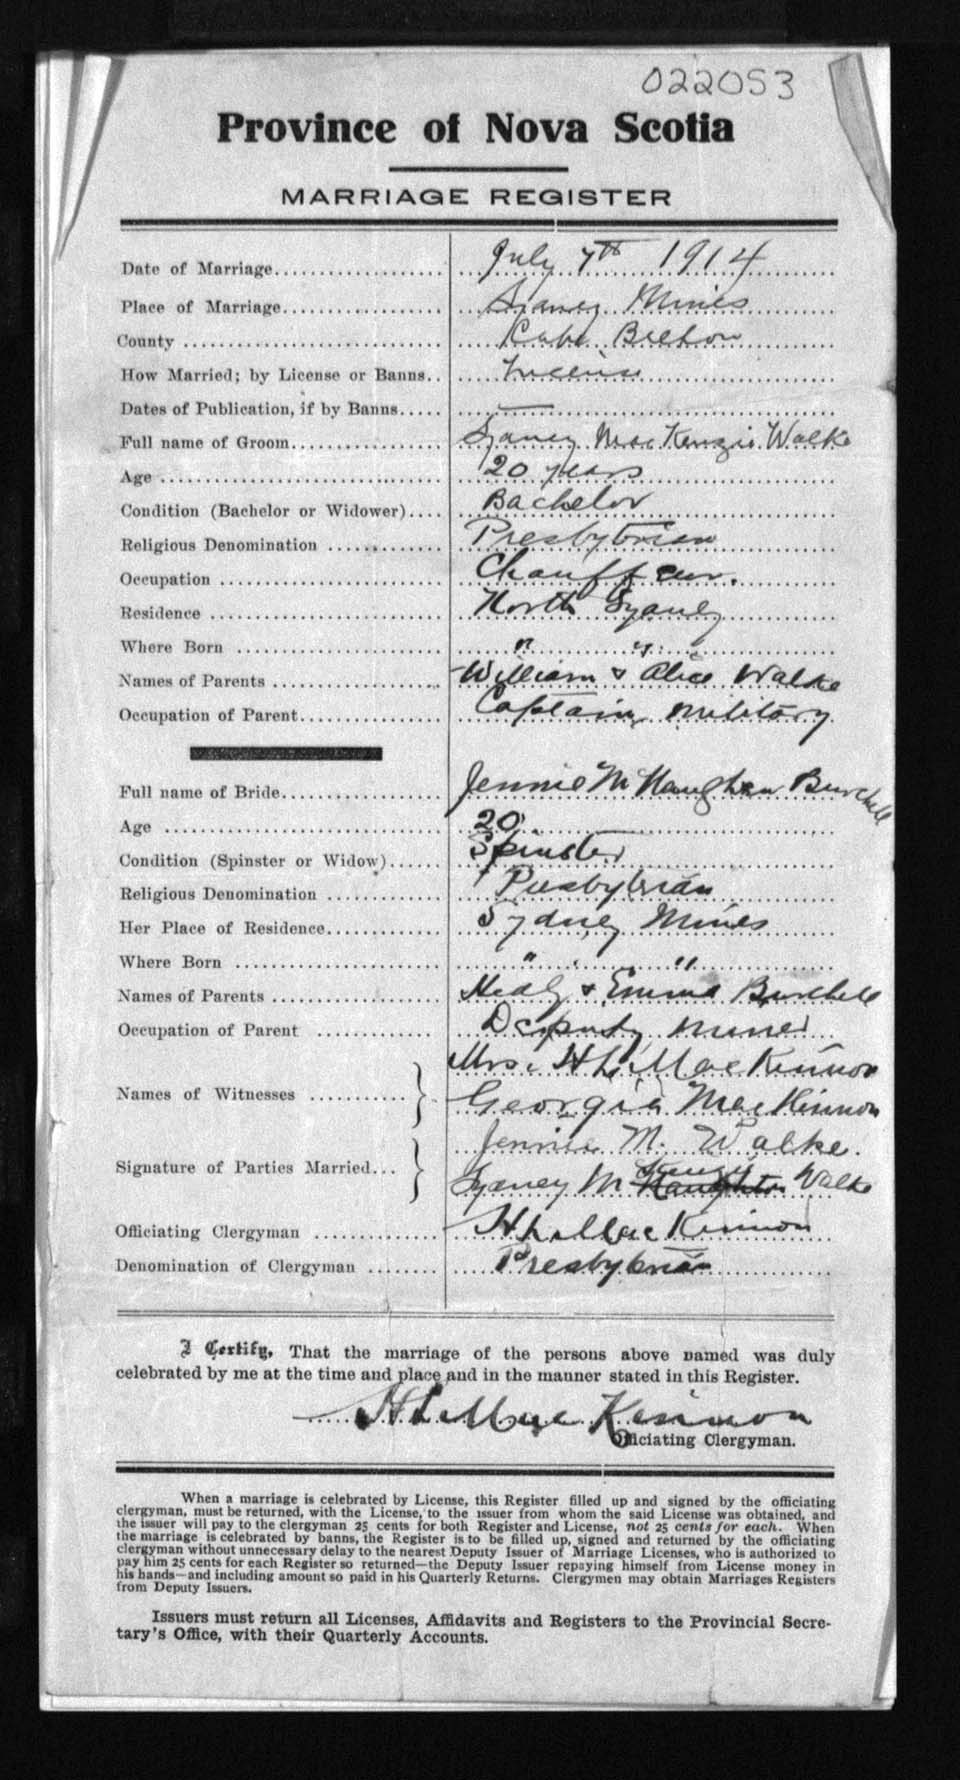 022053
Province of Nova Scotia
MARRIAGE REGISTER
Date of Marriage July 7th 1914
Place of Marriage Sydney Mines
County Cape Breton
How Married; by License or Banns License
Dates of Publication, if by Banns —
Full name of Groom Sydney MacKenzie Walke
Age 20 years
Condition (Bachelor or Widower) Bachelor
Religious Denomination Presbyterian
Occupation Chauffeur.
Residence North Sydney
Where Born " "
Names of Parents William & Alice Walke
Occupation of Parent Captain Military
Full name of Bride Jennie McNaughton Burchell
Age 20
Condition (Spinster or Widow) Spinster
Religious Denomination Presbyterian
Her Place of Residence Sydney Mines
Where Born " "
Names of Parents & Emma Burchell
Occupation of Parent Deputy Miner
Names of Witnesses Mrs. H L MacKinnon
Georgia MacKinnon
Signature of Parties Married Jennie M. Walke.
Sydney M Kenzie Naughton Walke
Officiating Clergyman H L MacKinnon
Denomination of Clergyman Presbyterian
I Certify, That the marriage of the persons above named was duly
celebrated by me at the time and place and in the manner stated in this Register.
H L MacKinnon
Officiating Clergyman.
When a marriage is celebrated by License, this Register filled up and signed by the officiating
clergyman, must be returned, with the License, to the issuer from whom the said License was obtained, and
the issuer will pay to the clergyman 25 cents for both Register and License, not 25 cents for each. When
the marriage is celebrated by banns, the Register is to be filled up, signed and returned by the officiating
clergyman without unnecessary delay to the nearest Deputy Issuer of Marriage Licenses, who is authorized to
pay him 25 cents for each Register so returned—the Deputy Issuer repaying himself from License money in
his hands—and including amount so paid in his Quarterly Returns. Clergymen may obtain Marriages Registers
from Deputy Issuers.
Issuers must return all Licenses, Affidavits and Registers to the Provincial Secre-
tary's Office, with their Quarterly Accounts.